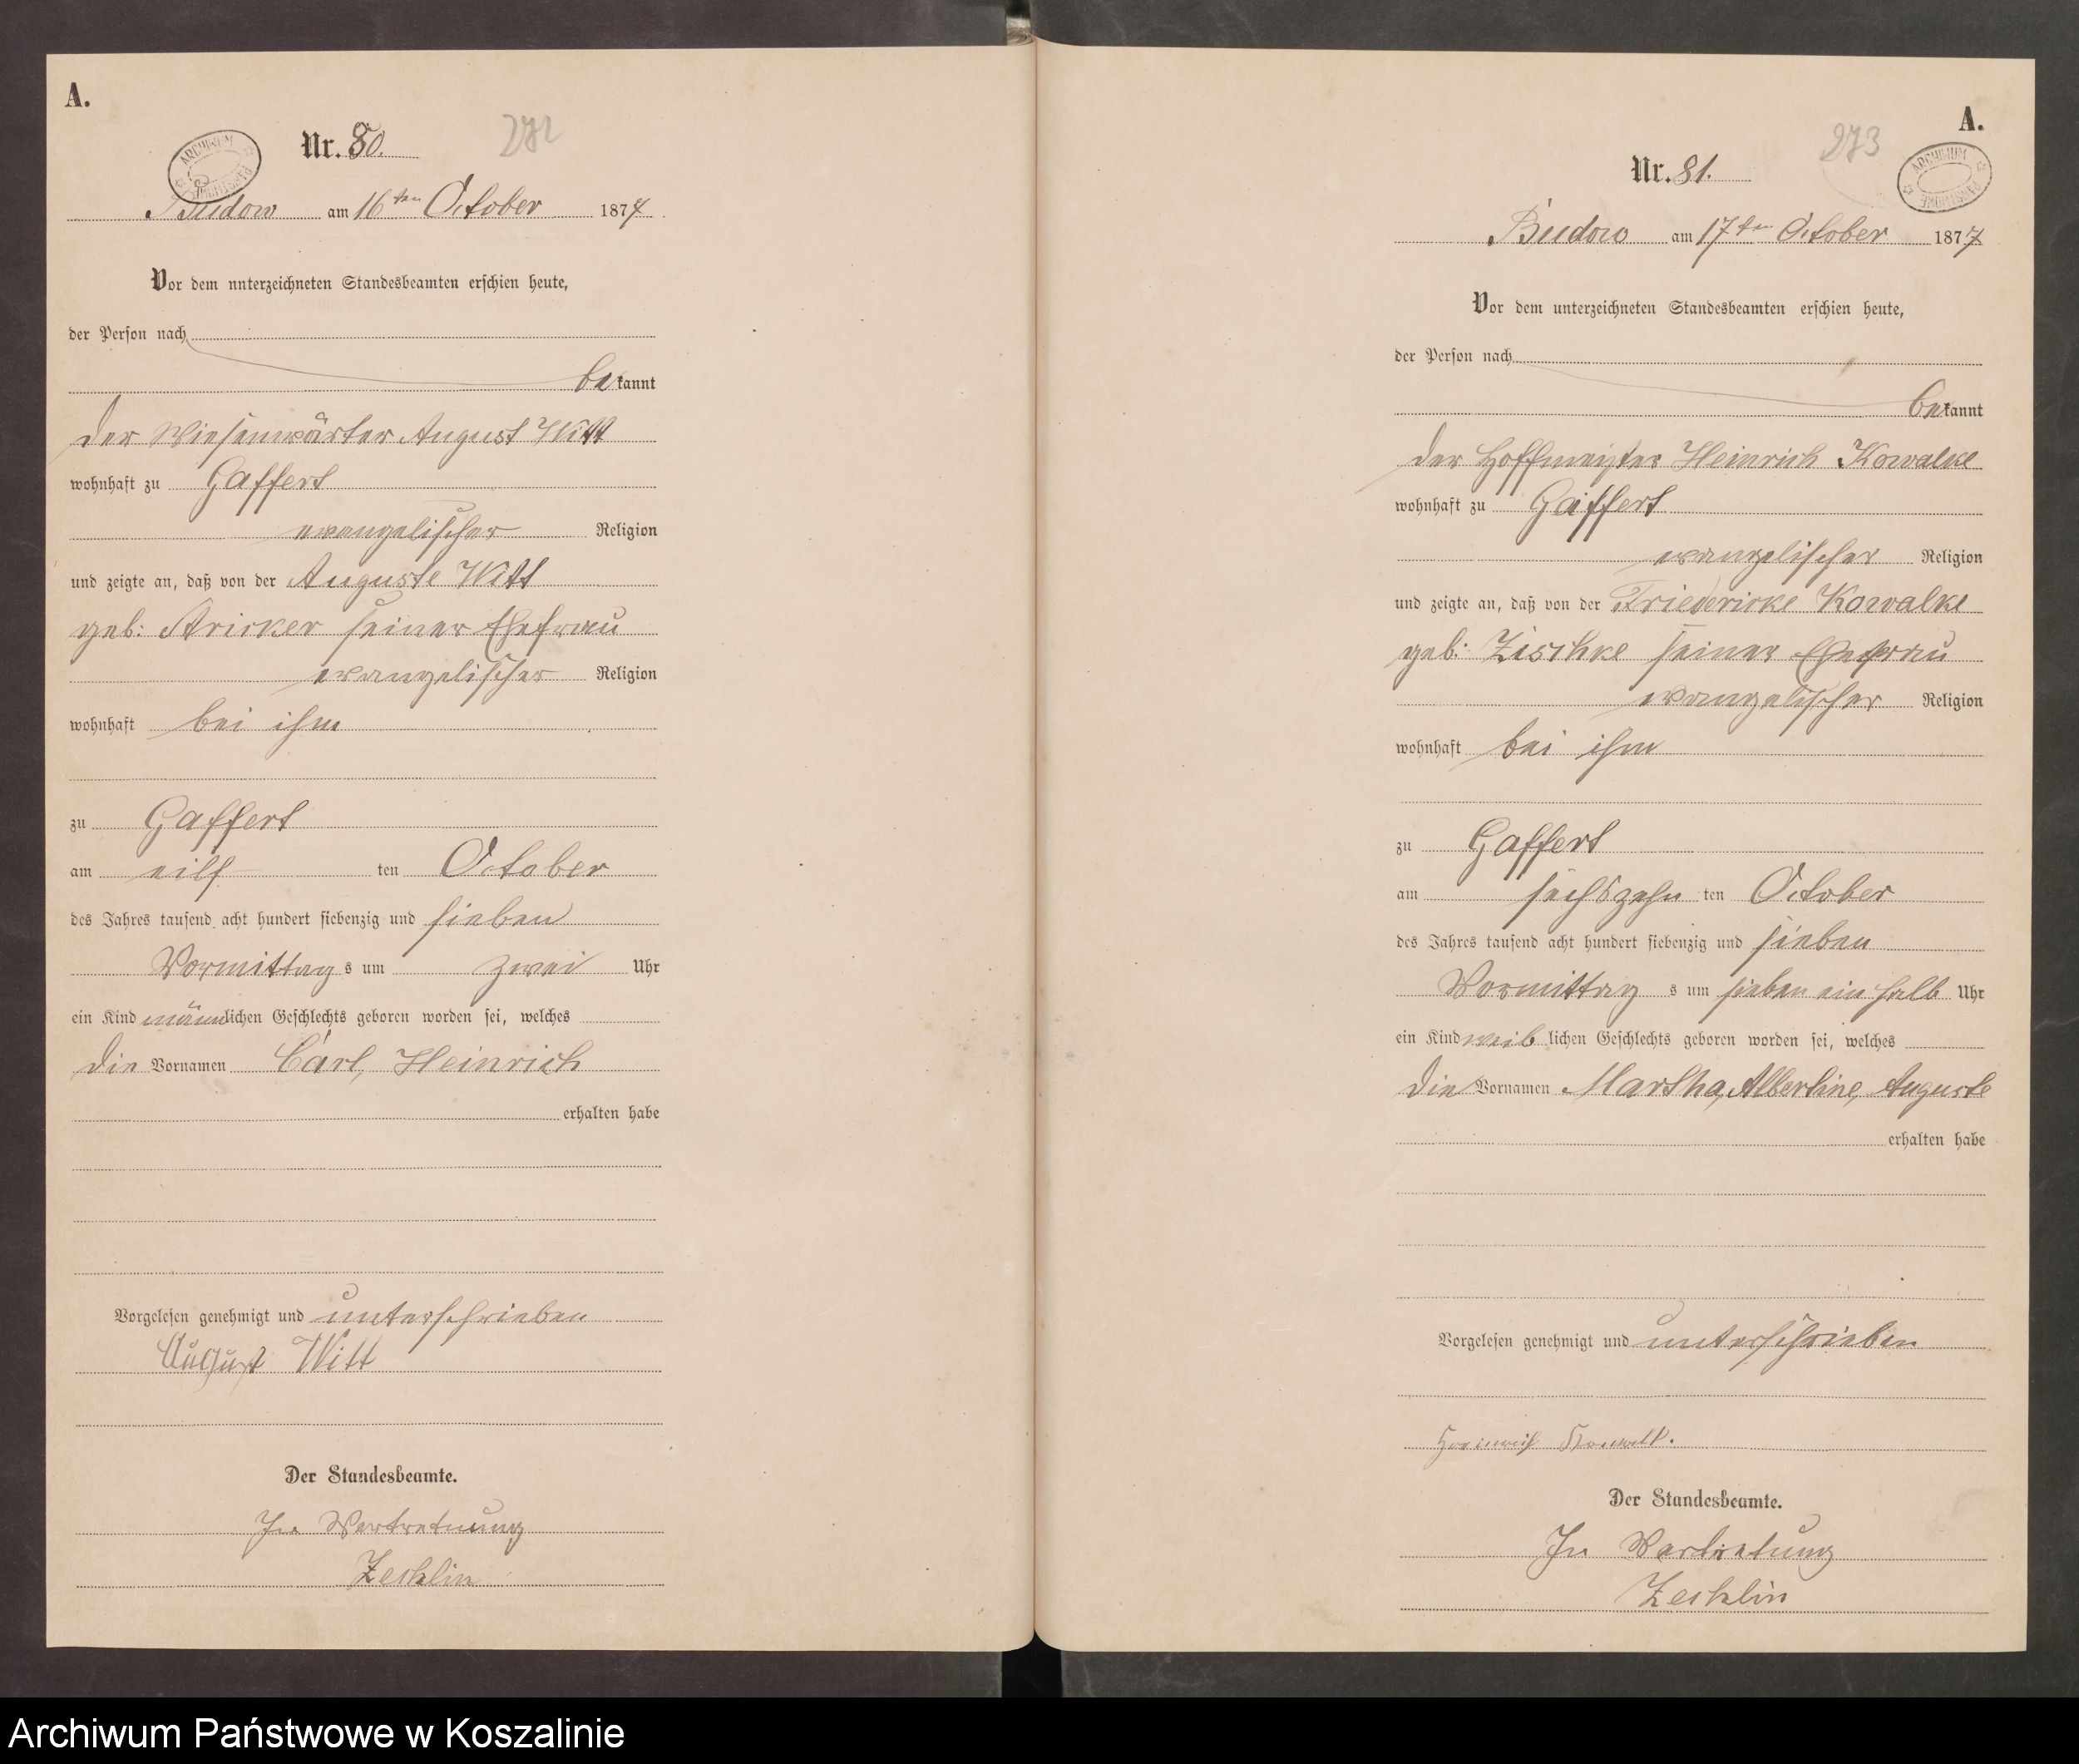 A.
Nr. 80.
272
ARCHIWUM PAŃSTWOWE
Budow am 16ten October 1877
Vor dem unterzeichneten Standesbeamten erschien heute,
der Person nach
bekannt
der Wiesenwärter August Witt
wohnhaft zu Gaffert
evangelischer Religion
und zeigte an, daß von der Auguste Witt
geb: Stricker seiner Ehefrau
evangelischer Religion
wohnhaft bei ihm
zu Gaffert
am eilf ten October
des Jahres tausend acht hundert siebenzig und sieben
Vormittag s um zwei Uhr
ein Kind männlichen Geschlechts geboren worden sei, welches
die Vornamen Carl, Heinrich
erhalten habe
Vorgelesen genehmigt und unterschrieben
August Witt
Der Standesbeamte.
In Vertretung
Zechlin
A.
273
Nr. 81.
ARCHIWUM PAŃSTWOWE
Budow am 17ten October 1877
Vor dem unterzeichneten Standesbeamten erschien heute,
der Person nach
bekannt
der Hoffmeister Heinrich Kowalke
wohnhaft zu Gaffert
evangelischer Religion
und zeigte an, daß von der Friedericke Kowalke
geb: Zischke seiner Ehefrau
evangelischer Religion
wohnhaft bei ihm
zu Gaffert
am sechszehn ten October
des Jahres tausend acht hundert siebenzig und sieben
Vormittag s um sieben ein halb Uhr
ein Kind weib lichen Geschlechts geboren worden sei, welches
die Vornamen Martha, Albertine, Auguste
erhalten habe
Vorgelesen genehmigt und unterschrieben
Heinrich
Der Standesbeamte.
In Vertretung
Zechlin
Archiwum Państwowe w Koszalinie